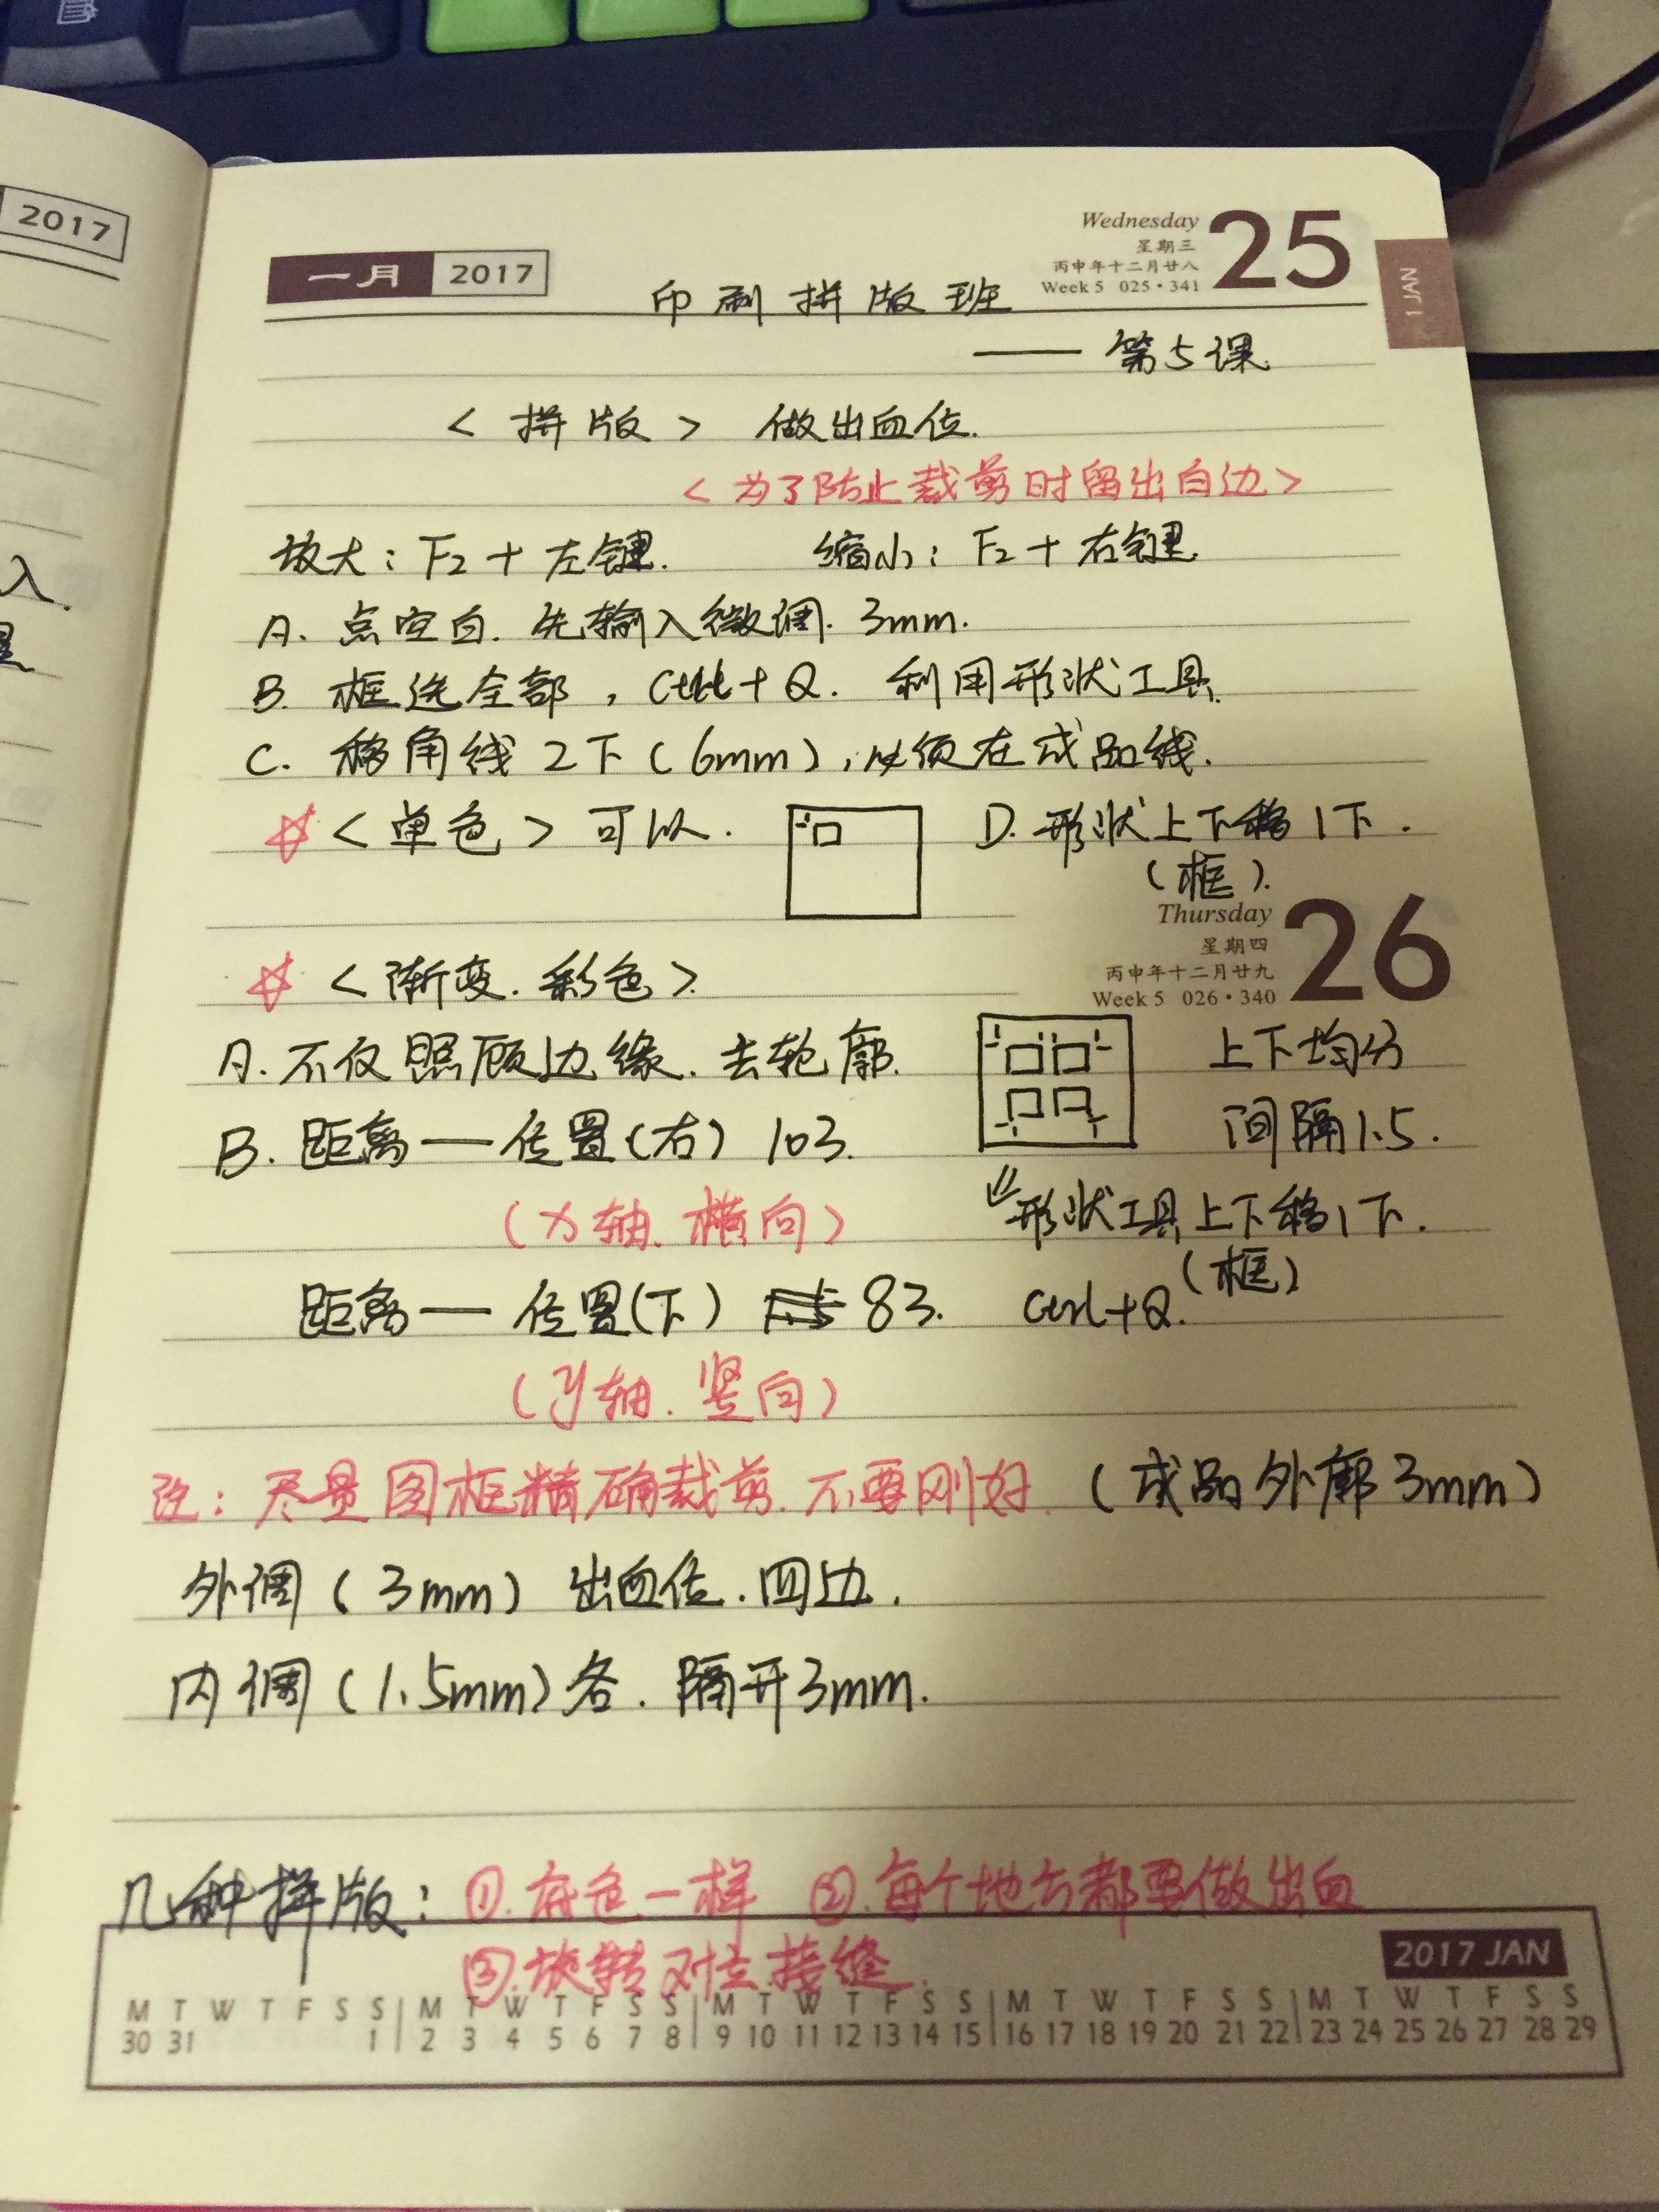 2017
入.
Wednesday
星期三
丙申年十二月廿八
Week 5 025·341
25
1 JAN
一月 2017
印刷拼版班
—— 第5课.
<拼版> 做出血位.
<为了防止裁剪时留出白边>
放大：F2+左键. 缩小：F2+右键.
A. 点空白. 先输入微调. 3mm.
B. 框选全部，Ctrl+Q. 利用形状工具.
C. 移角线2下(6mm)，必须在成品线.
☆<单色>可以. D. 形状上下移1下.
(框).
Thursday
星期四
丙申年十二月廿九
Week 5 026·340
26
☆<渐变.彩色>.
A. 不仅照顾边缘. 去轮廓. 上下均分
B. 距离——位置(右) 103. 间隔1.5.
(X轴.横向) 形状工具上下移1下.
(框)
距离——位置(下) 83. Ctrl+Q.
(y轴.竖向)
注：尽量图框精确裁剪.不要刚好.(成品外廓3mm)
外调(3mm) 出血位.四边.
内调(1.5mm)各. 隔开3mm.
几种拼版：①.底色一样 ②.每个地方都要做出血
③.旋转对位接缝.
2017 JAN
M T W T F S S | M T W T F S S | M T W T F S S | M T W T F S S | M T W T F S S
30 31 1 | 2 3 4 5 6 7 8 | 9 10 11 12 13 14 15 | 16 17 18 19 20 21 22 | 23 24 25 26 27 28 29